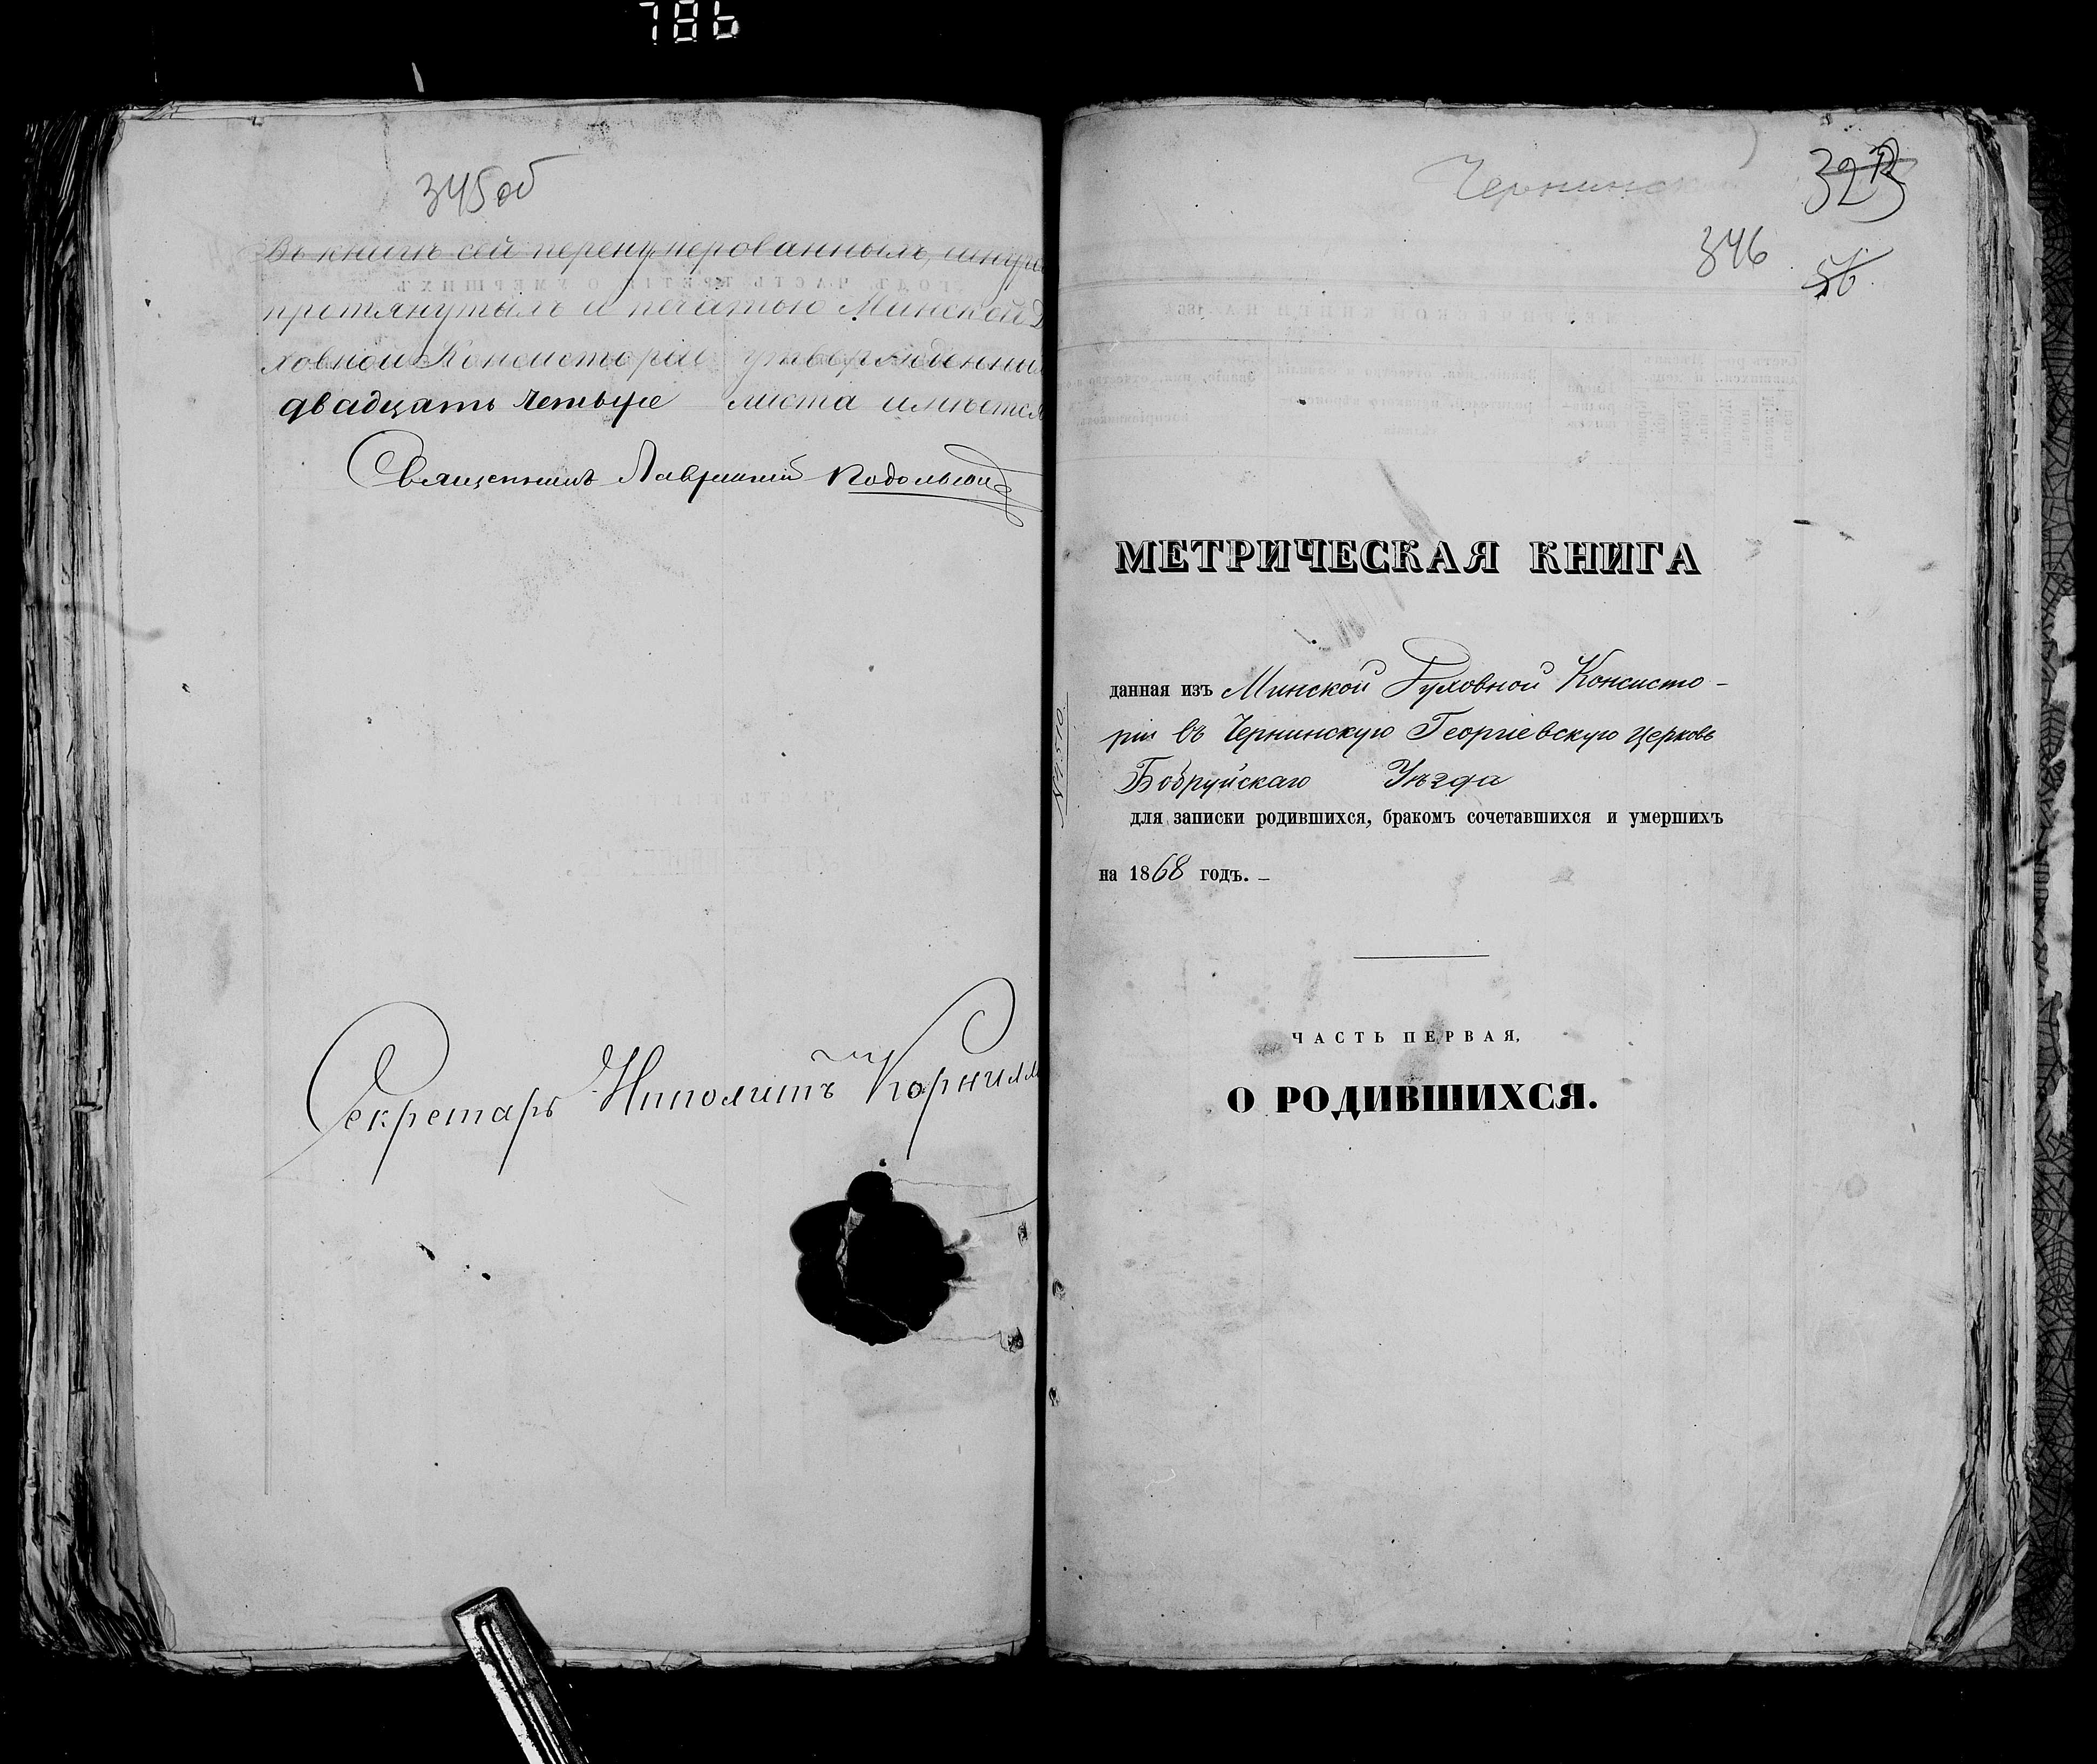 786
345об
Въ книгѣ сей перенумерованныхъ, шнуро
протянутыхъ и печатью Минской Д
ховной Консисторіи утвержденныхъ
двадцать четыре листа имѣется
Священникъ Лаврентій Подольскій
Секретарь Ипполитъ Корнил
Чернинск
323
346
56
МЕТРИЧЕСКАЯ КНИГА
данная изъ Минской Духовной Консисто-
ріи въ Чернинскую Георгіевскую церковь
Бобруйскаго Уѣзда
для записки родившихся, бракомъ сочетавшихся и умершихъ
на 1868 годъ. –
ЧАСТЬ ПЕРВАЯ,
О РОДИВШИХСЯ.